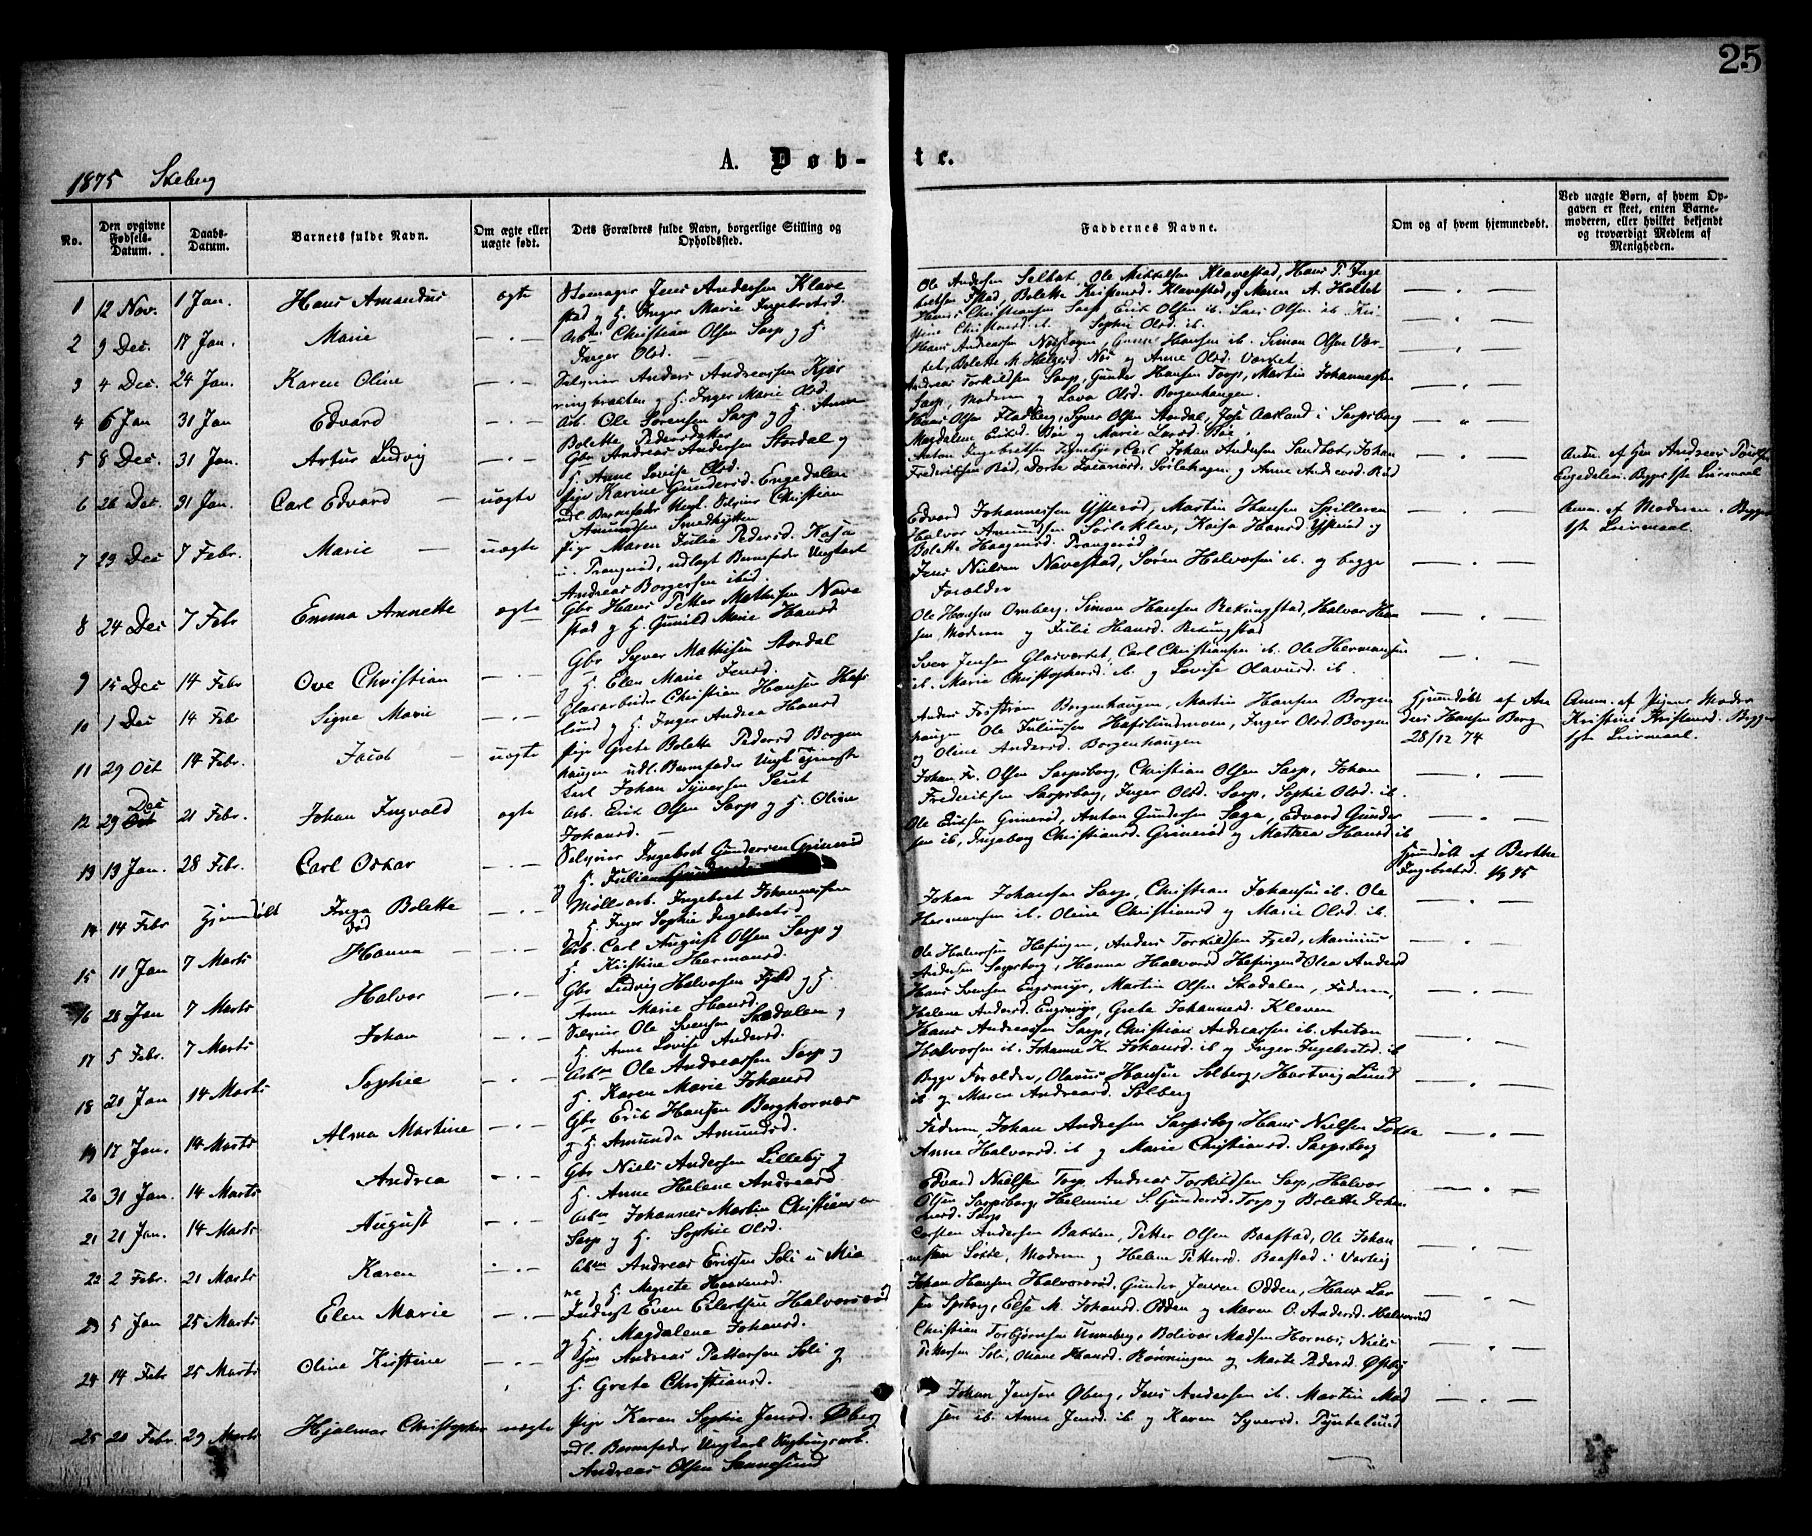 25
A. Døbte.
1875 Skeberg
No.
Den opgivne Fødsels-Datum.
Daabs-Datum.
Barnets fulde Navn.
Om ægte eller uægte født.
Dets Forældres fulde Navn, borgerlige Stilling og Opholdssted.
Faddernes Navne.
Om og af hvem hjemmedøbt.
Ved uægte Børn, af hvem Opgaven er skeet, enten Barnemoderen, eller hvilket bekjendt og troværdigt Medlem af Menigheden.
1 12 Nov. 1 Jan. Hans Amandus ægte Jens Andersen Klave
stad og H. Inger Marie Ingebretsd.
Ole Andersen Ole Mikkelsen Klavestad, Hans P. Inge
bretsen Bolette Kristensd. Klavestad, og Maren A.
2 9 Dec. 17 Jan. Marie — . — Arbm Christian Olsen Sarp og H.
Inger Olsd. —
Hans Christiansen Sarp Erik Olsen ib. Lars Olsen ib. Kri
stine Christiansd. ib. Sophie Olsd. ib.
3 4 Dec. 24 Jan. Karen Oline — . — Selveier Anders Andreassen Kjær
ringbrækken og H. Inger Marie Olsd.
Hans Andreassen Hansen ib. Simon Olsen Var-
tet, Bolette M. og Anne Olsd. Vartet
4 6 Jan 31 Jan. Edvard — . — Arb. Ole Sørensen Sarp og H. Anne
Bolette
Andreas Torkildsen Sarp, Gunder Hansen Torp, Martin Johannesen
Sarp, Moderen og Lava Olsd. Borgenhaugen.
5 8 Dec. 31 Jan. Artur Ludvig — . — Gbr Andreas Andersen Stordal og
H. Anne Lovise Olsd.
Hans Olsen Fladberg, Syver Olsen Stordal, Aasland i Sarpsborg
Magdalene Eriksd. og Marie Larsd.
6 26 Dec. 31 Jan. Carl Edvard — uægte Pige Karine Gundersd. Engedalen
udl. Barnefader Ungk. Selveier Christian
Amundsen
Anton Ingebretsen Carl Johan Andersen Johan
Frederiksen og Anne Andreasd.
Anm. af Andreas
Engedalen. Begges 1ste Leiermaal
7 29 Dec 7 Febr. Marie — uægte Pige Maren Julie Pedersd.
u. Prangerød, udlagt Barnefader Ungkarl
Andreas Borgersen ibid.
Edvard Johannesen Martin Hansen Spilleren
Halvor Amundsen Kaisa Hansd. og
Bolette Haagensd. Prangerød.
Anm. af Moderen. Begges
1ste Leiermaal.
8 24 Dec 7 Febr Emma Annette ægte Gbr Hans Petter Mathisen Nave
stad og H. Gunild Marie Hansd
Jens Nielsen Navestad, Søren Halvorsen ib. og begge
Forældre
9 15 Dec 14 Febr Ove Christian — . — Gbr Syver Mathisen Stordal
og H. Elen Marie Jensd.
Ole Hansen Omberg, Simon Hansen Rekingstad, Halvor Han
sen Moderen og Julie Hansd. Rekingstad
10 1 Dec 14 Febr Signe Marie — . — Glasarbeider Christian Hansen Hafs
lund og H. Inger Andrea Hansd
Sven Jensen Glasværket, Carl Christiansen ib. Ole Hermansen
ib. Marie Christophersd. ib. og Lovise Olavusd. ib.
11 29 Oct 14 Febr. Jacob — uægte Pige Grete Bolette Pedersd Borgen
haugen udl. Barnefader Ungk Tjeneste
karl Johan Syversen
Anders Borgenhaugen, Martin Hansen Borgen
haugen Ole Juliussen Hafslundmoen, Inger Olsd. Borgen
og Oline Andersd. Borgenhaugen
Hjemdøbt af An
ders Hansen Borg
28/12 74
Anm. af Pigens Moder
Kristine Kristensd. Begges
1ste Leiermaal.
12 29 Dec 21 Febr. Johan Ingvald ægte Arb. Erik Olsen Sarp og H. Oline
Johansd. —
Johan Fr. Olsen Sarpsborg, Christian Olsen Sarp, Johan
Frederiksen Sarpsborg, Inger Olsd. Sarp, Sophie Olsd. ib.
13 13 Jan. 28 Febr. Carl Oskar — . — Selveier Ingebret Gundersen Grimerød
og H. Juliane
Ole Eriksen Grimerød, Anton Gundersen Saga, Edvard Gunder
sen ib, Ingeborg Christiansd. Grimerød og Mathea Hansd. ib
14 14 Febr Hjemdøbt Inga Bolette — . — Møllearb. Ingebret Johannessen
død
og H. Inger Sophie Ingebretsd.
Hjemdøbt af Berthe
Ingebretsd.
15 11 Jan 7 Marts Hanna — — . — Arb. Carl August Olsen Sarp og
H. Kristine Hermansd.
Johan Johansen Sarp, Christian Johansen ib. Ole
Hermansen ib. Oline Christiansd og Marie Olsd. ib.
16 28 Jan 7 Marts Halvor — . — Gbr Ludvig Halvorsen Fjeld og H.
Anne Marie Hansd.
Ole Halvorsen Høfingen, Anders Torkildsen Fjeld, Marinius
Andersen Sarpsborg, Hanna Halvorsd Høfingen, Olea Andersd
17 5 Febr. 7 Marts Johan — . — Selveier Ole Svensen Skadalen og
H. Anne Lovise Andersd.
Hans Svensen Engsmyr, Martin Olsen Skadalen, Faderen,
Helene Andersd. Engsmyr, Grete Johannesd. Kleven
18 21 Jan 14 Marts Sophie — . — Arbm Ole Andreassen Sarp og
H. Karen Marie Johansd
Hans Andreassen Sarp, Christian Andreassen ib. Anton
Halvorsen ib. Johanne K. Johansd. ib og Inger Ingebretsd. ib
19 17 Jan. 14 Marts Alma Martine — . — Gbr Erik Hansen Borghornæs
og H. Amunda Amundsd.
Begge Forældre, Olavus Hansen Solberg, Hartvig Lund
ib og Maren Andreasd. Solberg
20 31 Jan. 14 Marts Andrea — . — Gbr Niels Andersen Lilleby og
H. Anne Helene Andreasd.
Faderen, Johan Andresen Sarpsborg, Hans Nielsen
Anne Halvorsd. ib og Marie Christiansd. Sarpsborg
21 21 Jan. 14 Marts August — . — Arbm Johannes Martin Christiansen
Sarp og H. Sophie Olsd.
Edvard Nielsen Torp, Andreas Torkildsen Sarp, Halvor
Olsen Sarpsborg, Helmine S. Gundersd. Torp og Bolette Johan
nesd. Sarp
22 2 Febr. 21 Marts Karen — . — Arbm Andreas Eriksen Soli u. Mia
og H. Megrete
Carsten Andersen Bakken, Petter Olsen Baastad, Ole Johan
nessen Moderen og Helene Pettersd. Baastad i Varteig
23 5 Jan 25 Marts Elen Marie — . — Inderst Even Eilertsen Halvorsrød
og H. Magdalena Johansd.
Johan Hansen Halvorsrød. Gunder Jensen Odden, Hans Lar
sen Else M. Johansd. Odden og Maren O. Andersd. Halvorsrød
24 14 Febr 25 Marts Oline Kirstine — . — Andreas Pettersen Soli og
H. Grete Christiansd.
Christian Torbjørnsen Unneberg, Bolivar Madsen Hornæs, Niels
Pettersen Soli, Oliane Hansd. Rønningen og Marte Pedersd. Østby
25 20 Febr. 29 Marts Hjalmar Christopher uægte Pige Karen Sophie Jensd. Øberg
udl. Barnefader Ungkarl
Andreas Olsen Sannesund
Johan Jensen Øberg, Jens Andersen ib. Martin Mad
sen ib. Anne Jensd. ib og Karen Syversd. Tyntelund